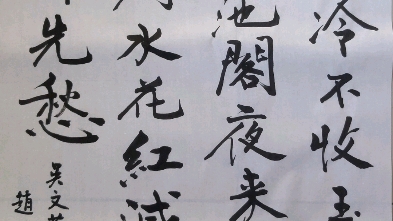 冷不收玉
池閣夜来
水花紅減
先愁
吴文英
趙